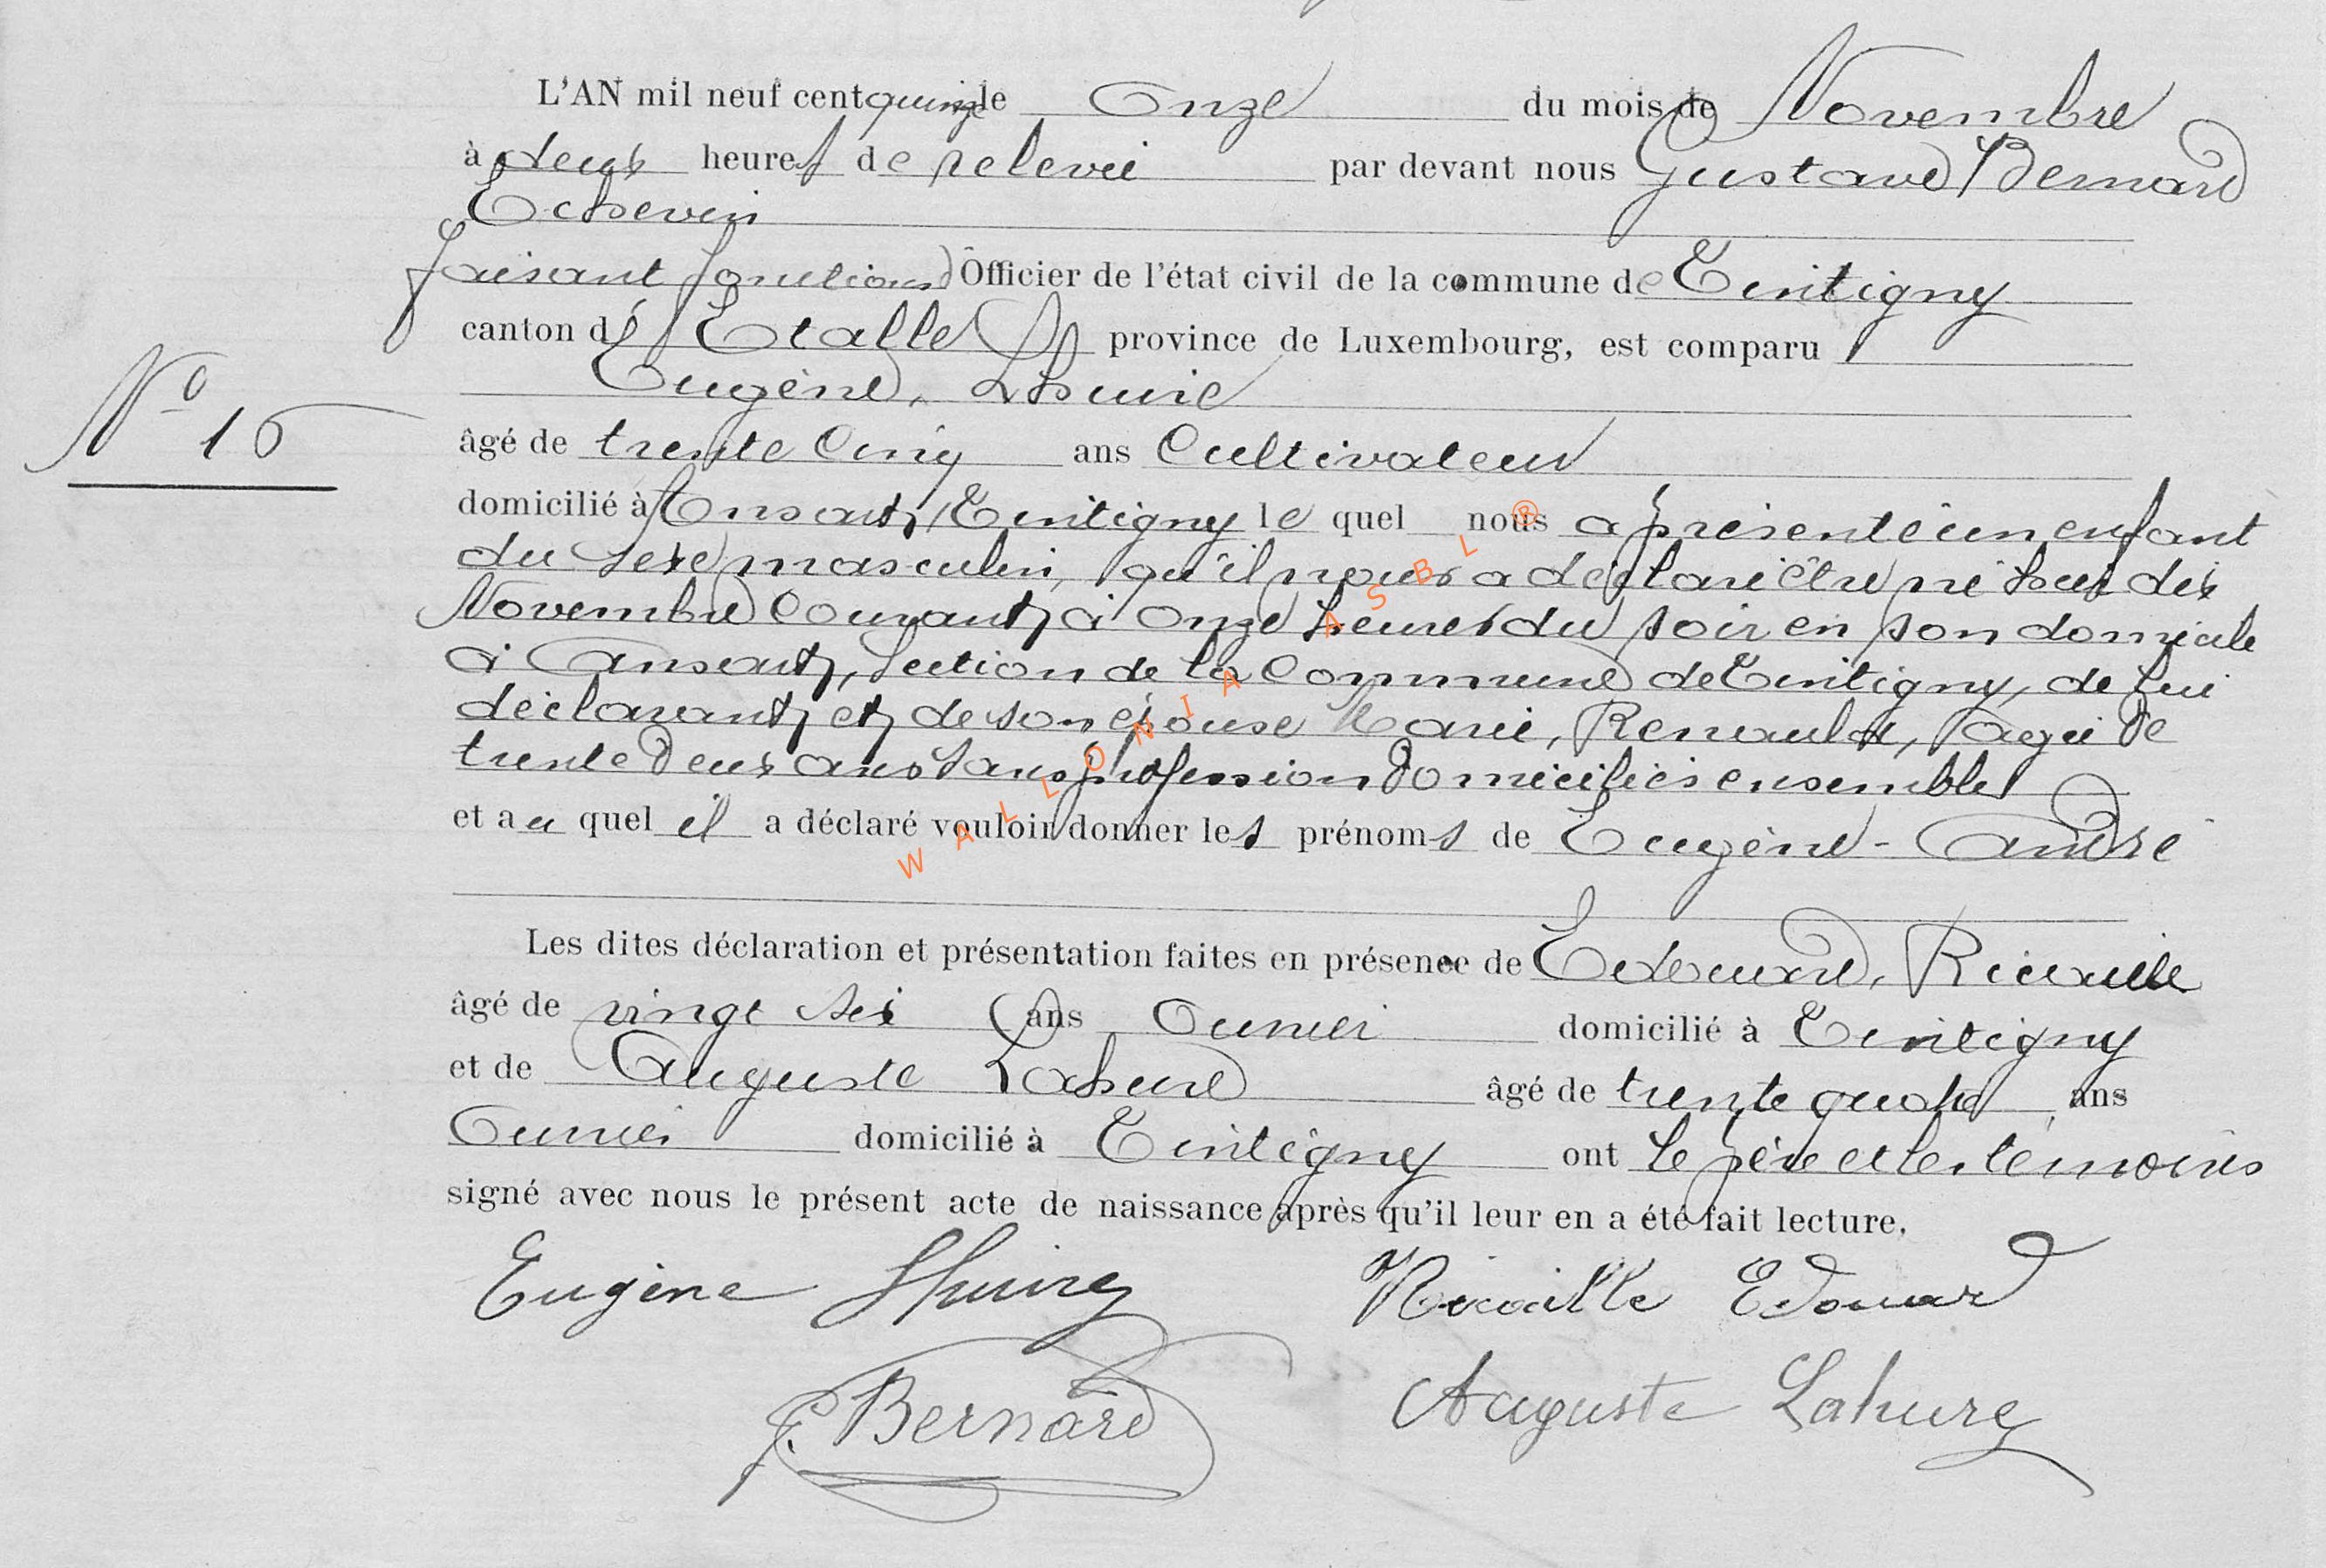 L'AN mil neuf cent quinze le Onze du mois de Novembre
à deux heures de relevée par devant nous Gustave Bernard
Echevin
faisant fonctions Officier de l'état civil de la commune de Tintigny
canton d' Etalle province de Luxembourg, est comparu
Eugène, Lhuire
N° 16
âgé de trente cinq ans Cultivateur
domicilié à Ansart, Tintigny le quel nous a présenté un enfant
du sexe masculin, qu'il nous a déclaré être né le dix
Novembre Courant, à Onze heures du soir en son domicile
à Ansart, Section de la Commune de Tintigny, de lui
déclarant, et de son épouse Marie, Renauld, agée de
trente deux ans Sans profession domiciliés ensemble
et au quel il a déclaré vouloir donner les prénoms de Eugène - André
Les dites déclaration et présentation faites en présence de Edouard, Ricaille
âgé de vingt six ans Ouvrier domicilié à Tintigny
et de Auguste Lahure âgé de trente quatre ans
Ouvrier domicilié à Tintigny ont le père et les témoins
signé avec nous le présent acte de naissance après qu'il leur en a été fait lecture.
Eugène Lhuire Ricaille Edouard
G. Bernard Auguste Lahure
WALLONIA ASBL ®